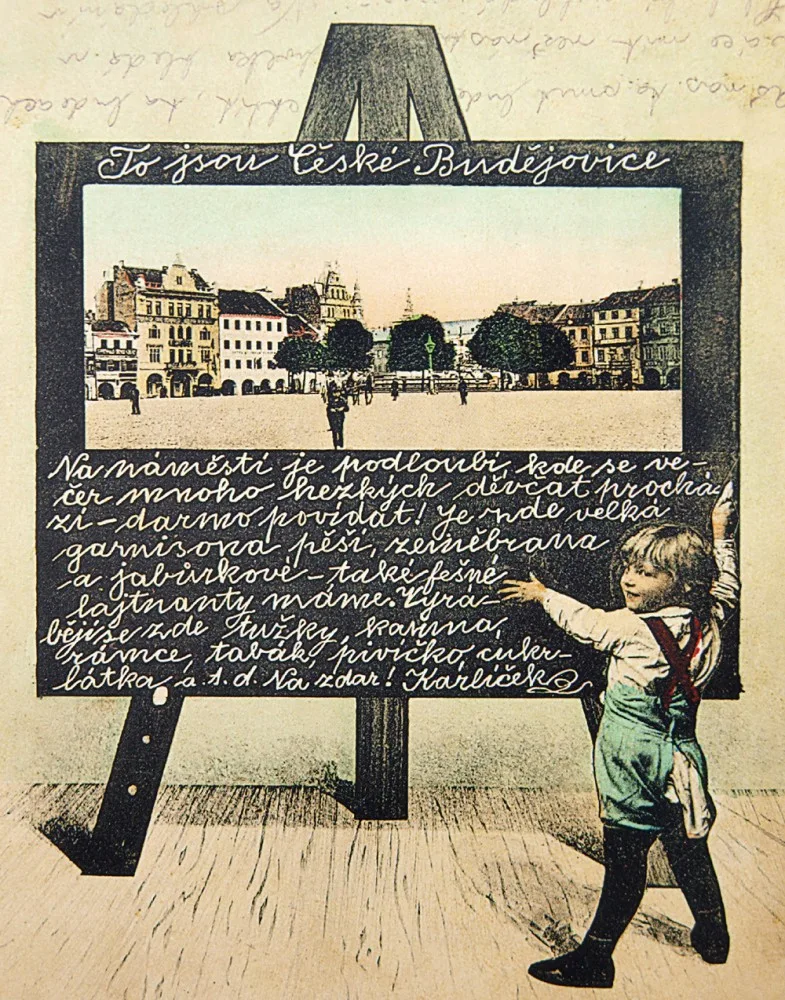 To jsou České Budějovice
Na náměstí je podloubí, kde se ve-
čer mnoho hezkých děvčat prochá-
zí – darmo povídat! Je zde velká
garnisona pěší, zeměbrana
a jabůrkové – také fešné
lajtnanty máme. Vyrá-
bějí se zde tužky, kamna,
rámce, tabák, pivíčko, cukr-
bátka a. t. d. Na zdar! Karlíček